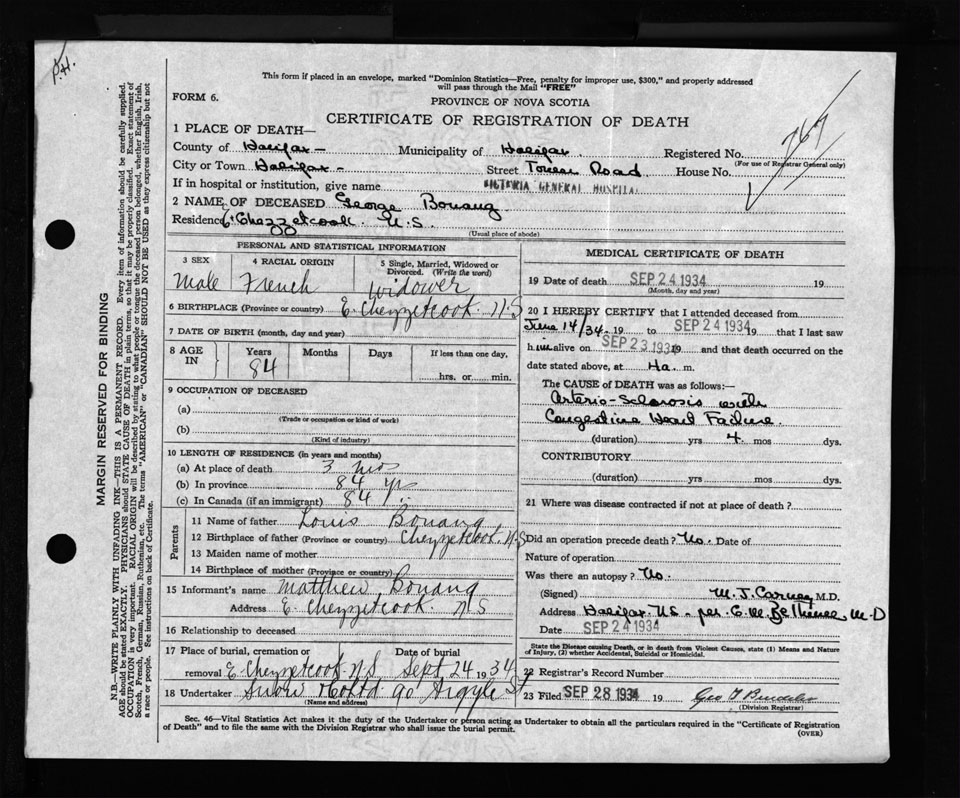 P.H.
This form if placed in an envelope, marked "Dominion Statistics—Free, penalty for improper use, $300," and properly addressed
will pass through the Mail "FREE"
FORM 6.
PROVINCE OF NOVA SCOTIA
CERTIFICATE OF REGISTRATION OF DEATH
767
1 PLACE OF DEATH—
County of Halifax — Municipality of Halifax. Registered No.
(For use of Registrar General only)
City or Town Halifax — Street Tower Road House No.
If in hospital or institution, give name VICTORIA GENERAL HOSPITAL
2 NAME OF DECEASED George Bonang
Residence E. Chezzetcook N.S.
(Usual place of abode)
PERSONAL AND STATISTICAL INFORMATION
3 SEX 4 RACIAL ORIGIN 5 Single, Married, Widowed or Divorced. (Write the word)
Male French Widower
6 BIRTHPLACE (Province or country) E. Chezzetcook. N.S
7 DATE OF BIRTH (month, day and year)
8 AGE IN Years Months Days If less than one day,
84 hrs. or min.
9 OCCUPATION OF DECEASED
(a)
(Trade or occupation or kind of work)
(b)
(Kind of industry)
10 LENGTH OF RESIDENCE (in years and months)
(a) At place of death 3 mos
(b) In province 84 yrs
(c) In Canada (if an immigrant) 84 y
Parents
11 Name of father Louis Bonang
12 Birthplace of father (Province or country) Chezzetcook. N.S
13 Maiden name of mother
14 Birthplace of mother (Province or country)
15 Informant's name Matthew Bonang
Address E. Chezzetcook. N S
16 Relationship to deceased
17 Place of burial, cremation or Date of burial
removal E. Chezzetcook N.S Sept 24 1934
18 Undertaker Snow & Co Ltd 90 Argyle St
(Name and address)
MEDICAL CERTIFICATE OF DEATH
19 Date of death SEP 24 1934 19
(Month, day and year)
20 I HEREBY CERTIFY that I attended deceased from
June 14/34. 19 to SEP 24 1934 9 that I last saw
him alive on SEP 23 1934 19 and that death occurred on the
date stated above, at m.
The CAUSE of DEATH was as follows:—
Arterio-Sclerosis with
Congestive Heart Failure.
(duration) yrs 4 mos dys.
CONTRIBUTORY
(duration) yrs mos dys.
21 Where was disease contracted if not at place of death?
Did an operation precede death? No. Date of
Nature of operation
Was there an autopsy? No.
(Signed) M. J. Carney M.D.
Address Halifax N.S. - per. M.D
Date SEP 24 1934
State the Disease causing Death, or in death from Violent Causes, state (1) Means and Nature
of Injury, (2) whether Accidental, Suicidal or Homicidal.
22 Registrar's Record Number
23 Filed SEP 28 1934 19 Geo
(Division Registrar)
Sec. 46—Vital Statistics Act makes it the duty of the Undertaker or person acting as Undertaker to obtain all the particulars required in the "Certificate of Registration
of Death" and to file the same with the Division Registrar who shall issue the burial permit.
(OVER)
MARGIN RESERVED FOR BINDING
N.B.—WRITE PLAINLY WITH UNFADING INK—THIS IS A PERMANENT RECORD. Every item of information should be carefully supplied.
AGE should be stated EXACTLY. PHYSICIANS should STATE CAUSE OF DEATH in plain terms, so that it may be properly classified. Exact statement of
OCCUPATION is very important. RACIAL ORIGIN will be described by stating to what people or tongue the deceased person belonged, whether English, Irish,
Scotch, French, German, Russian, Ruthenian, etc. The terms "AMERICAN" or "CANADIAN" SHOULD NOT BE USED as they express citizenship but not
a race or people. See instructions on back of Certificate.